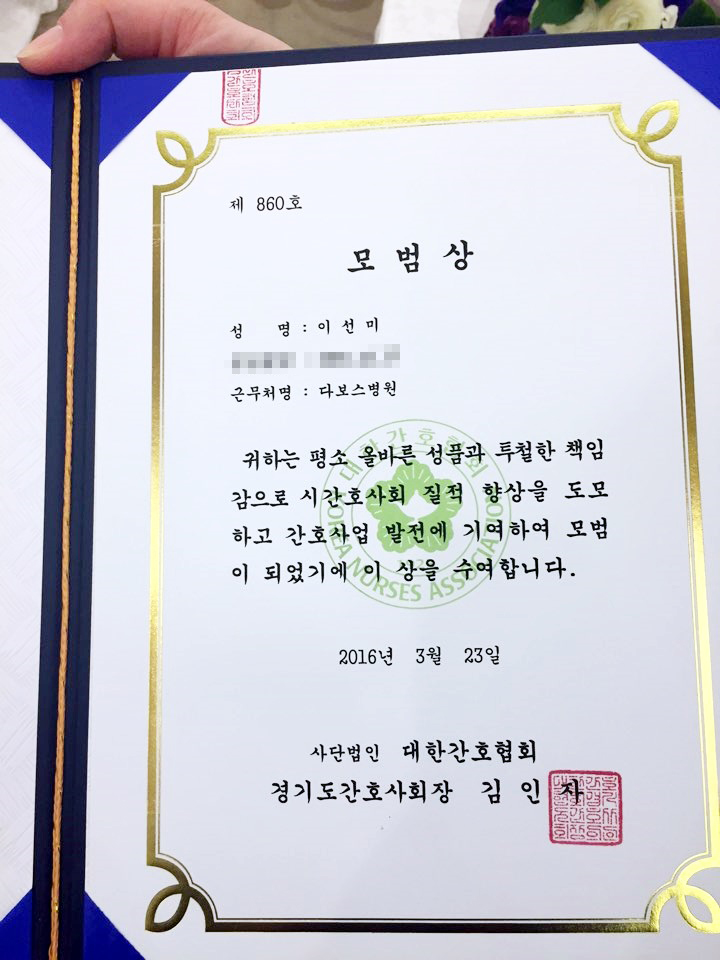 제 860호
모 범 상
성 명 : 이 선 미
근무처명 : 다보스병원
귀하는 평소 올바른 성품과 투철한 책임
감으로 시간호사회 질적 향상을 도모
하고 간호사업 발전에 기여하여 모범
이 되었기에 이 상을 수여합니다.
대한간호협회
KOREA NURSES ASSOCIATION
2016년 3월 23일
사단법인 대한간호협회
경기도간호사회장 김 인 자